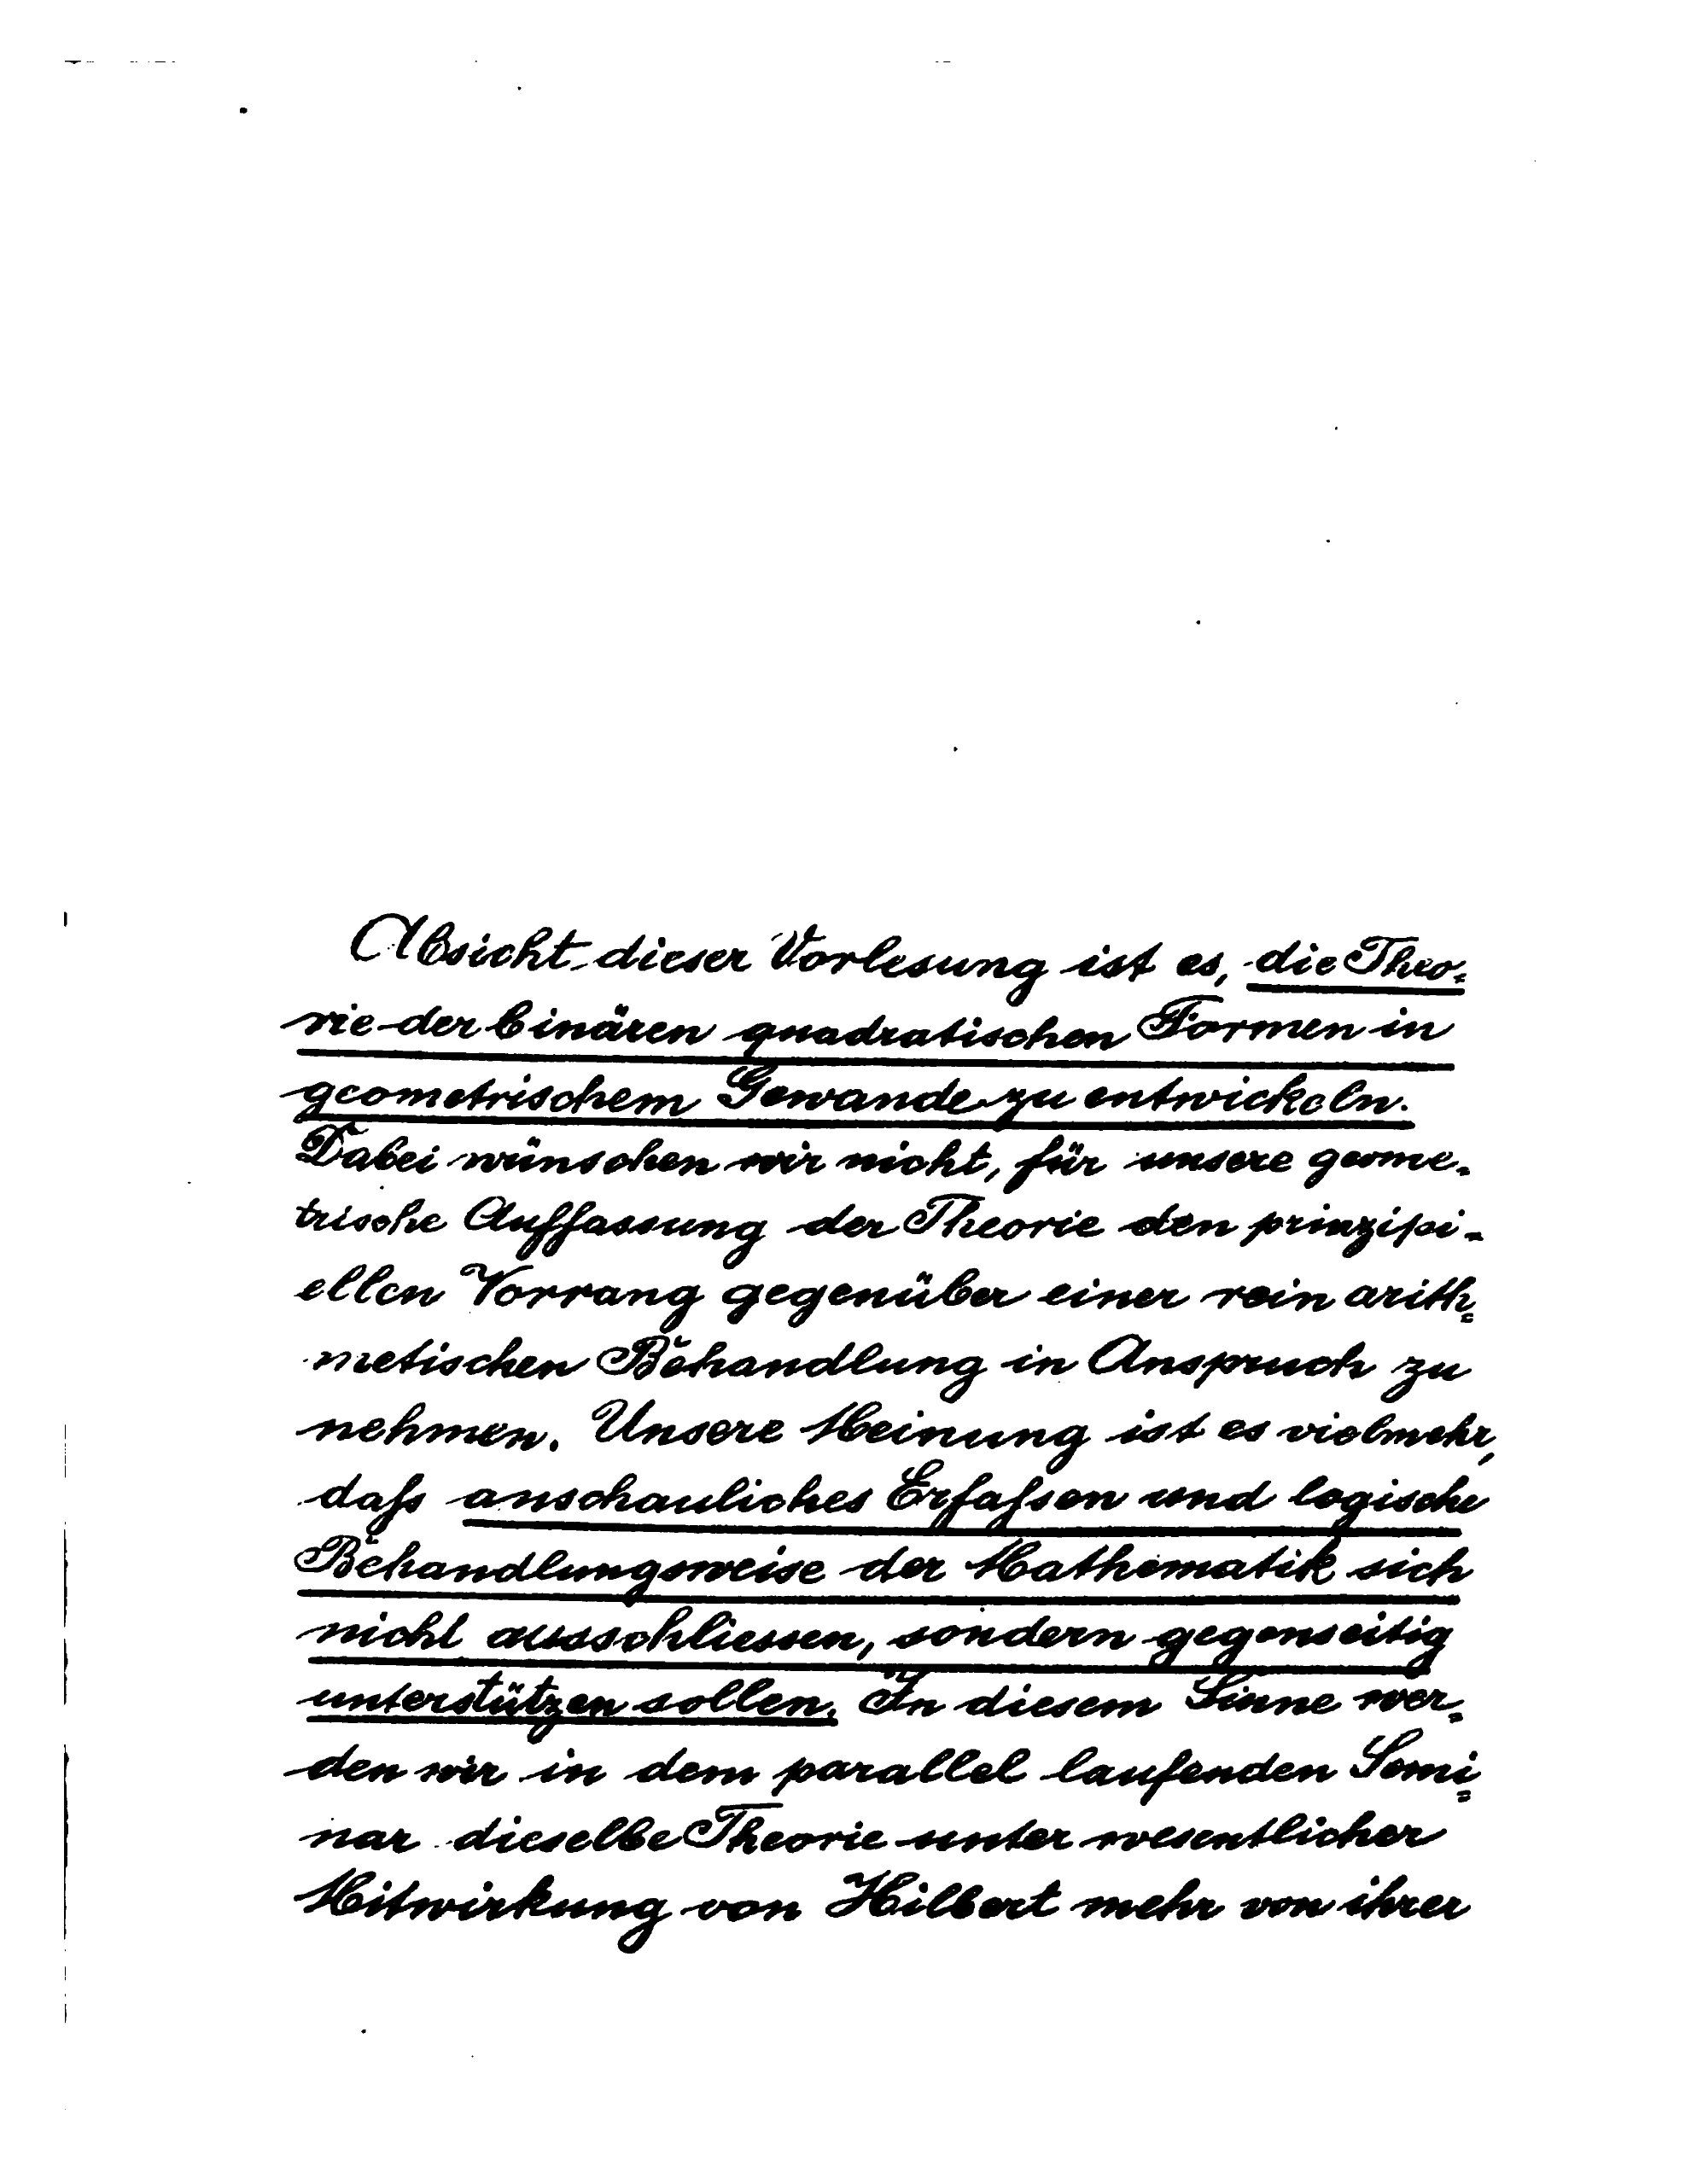 Absicht dieser Vorlesung ist es, die Theo=
rie der binären quadratischen Formen in
geometrischem Gewande zu entwickeln.
Dabei wünschen wir nicht, für unsere geome=
trische Auffassung der Theorie den prinzipi=
ellen Vorrang gegenüber einer rein arith=
metischen Behandlung in Anspruch zu
nehmen. Unsere Meinung ist es vielmehr,
daſs anschauliches Erfaſsen und logische
Behandlungsweise der Mathematik sich
nicht ausschliessen, sondern gegenseitig
unterstützen sollen. In diesem Sinne wer=
den wir in dem parallel laufenden Semi=
nar dieselbe Theorie unter wesentlicher
Mitwirkung von Hilbert mehr von ihrer